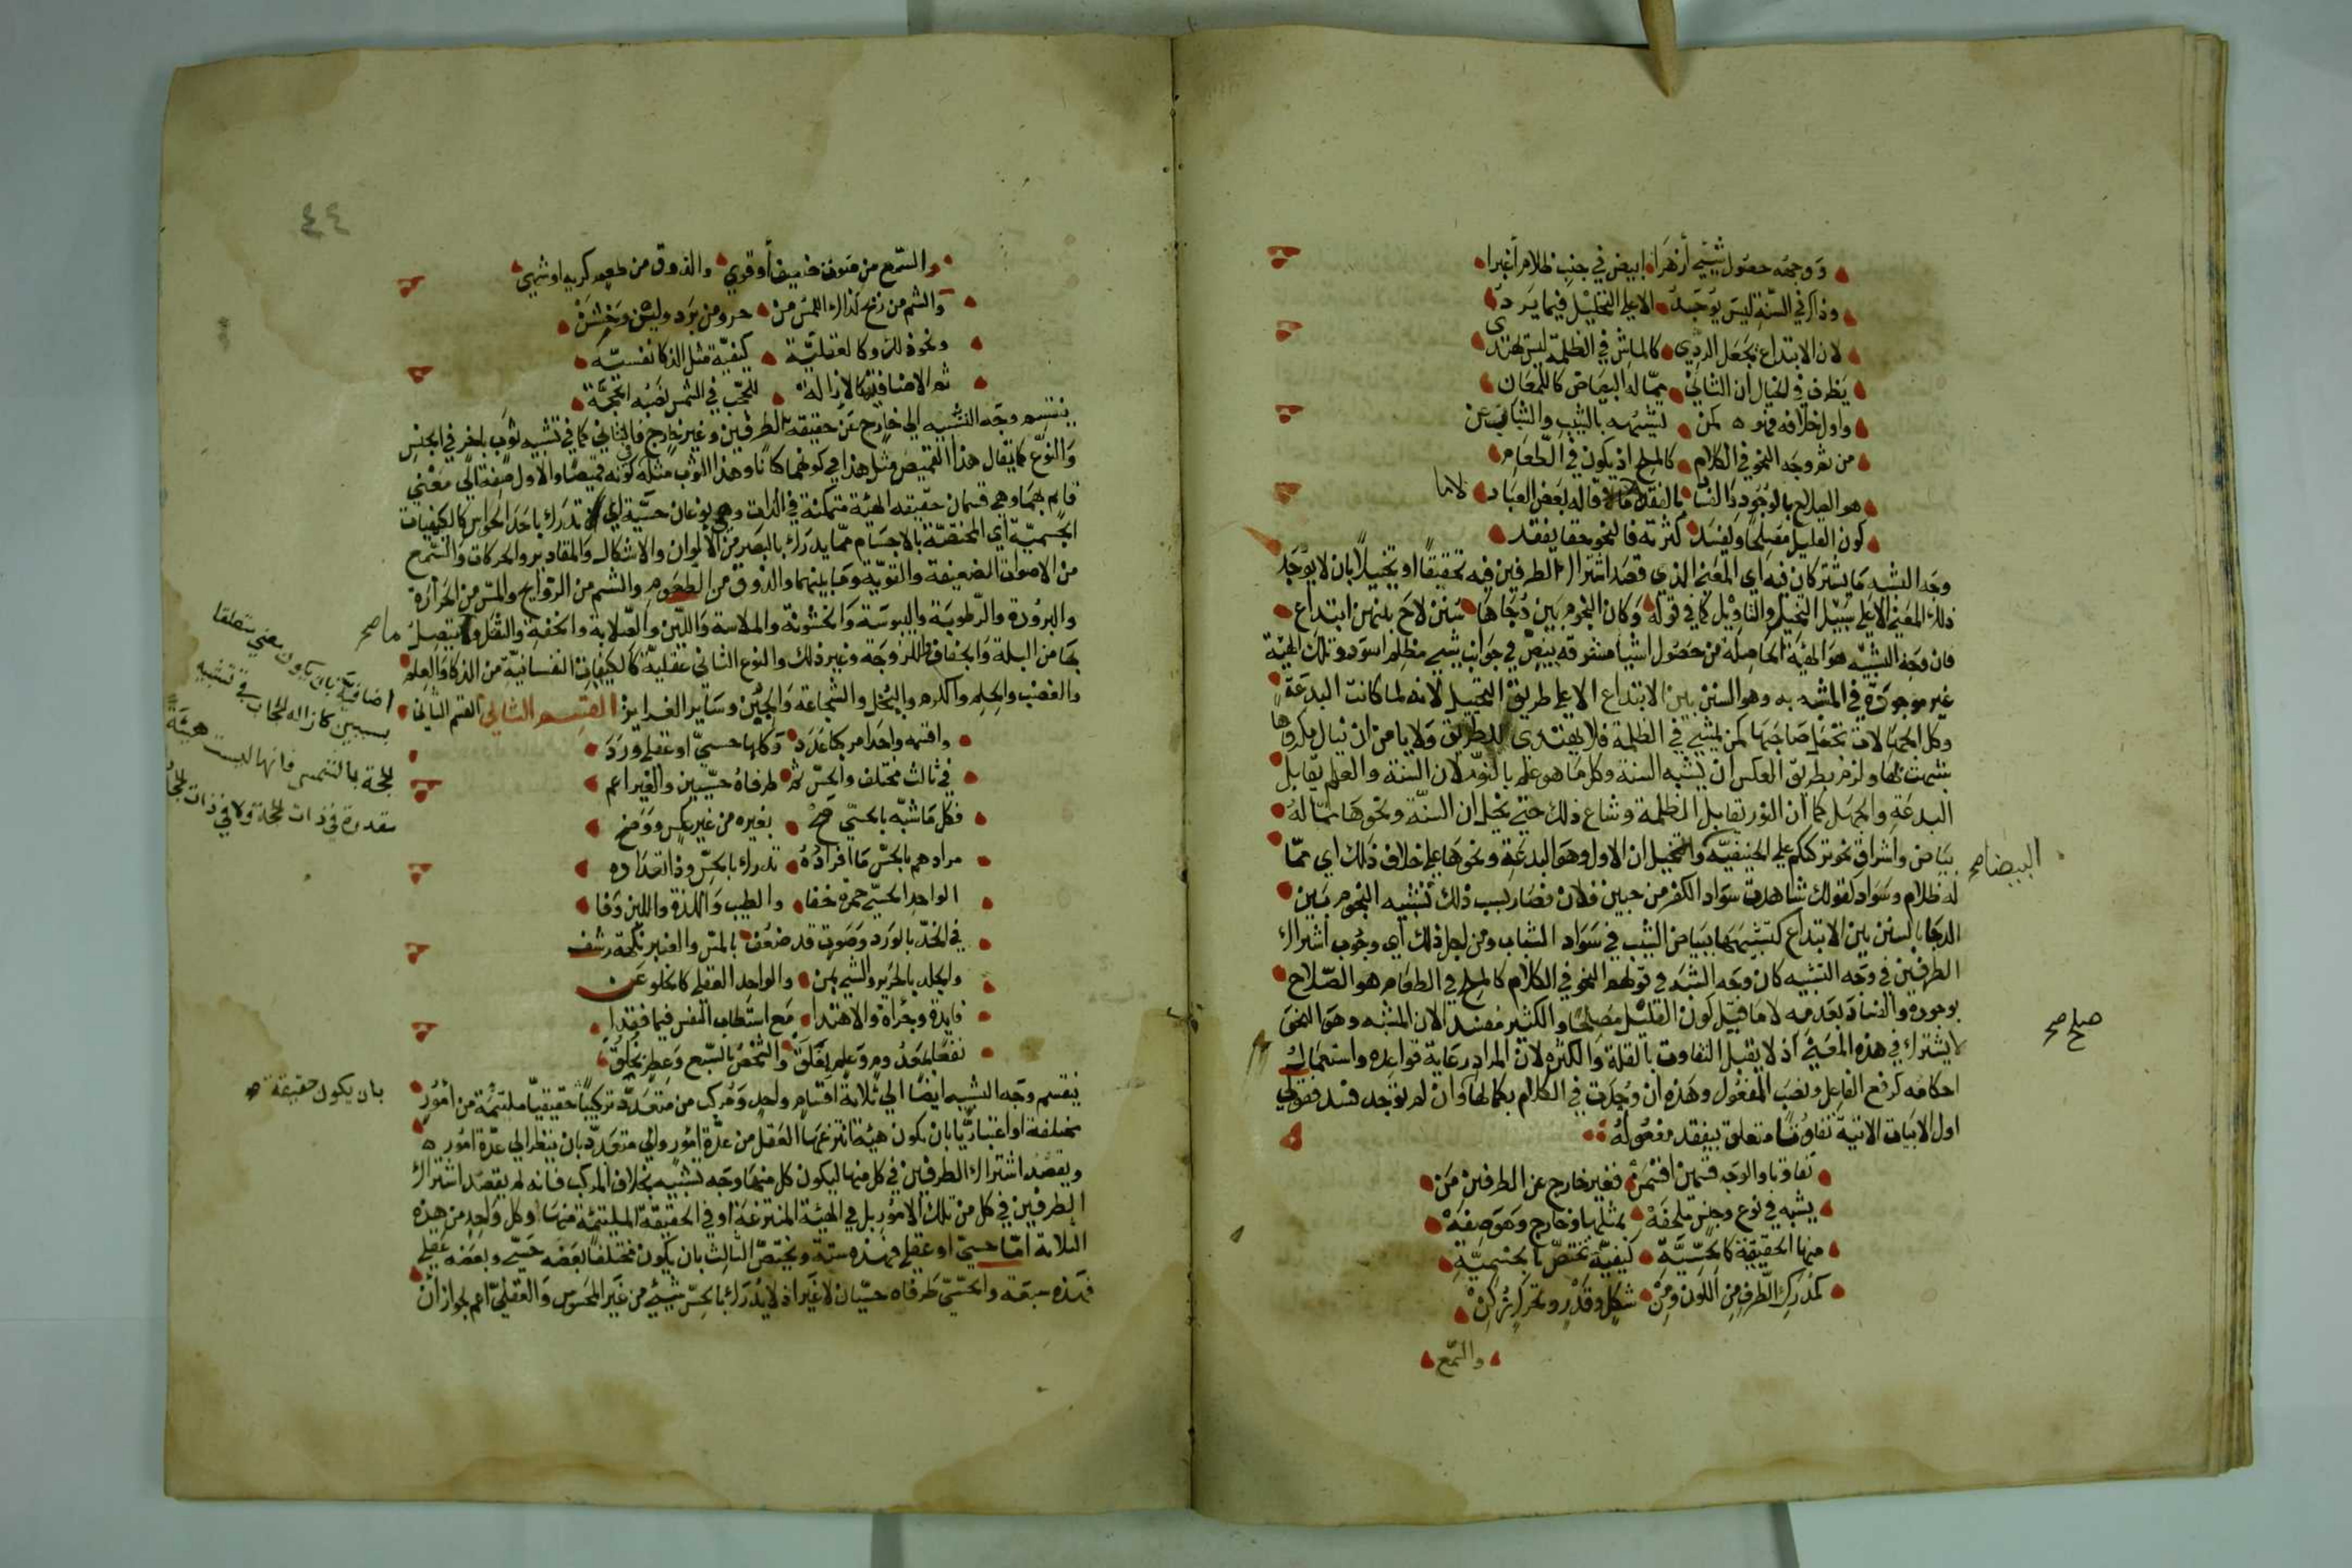 ووجهه حصول شيئ أزهرا ابيض في جنب ظلام أغبرا
وذاك في السنة ليس يوجد الا على التخييل فيما يرد
لان الابتداع يجعل الردي كالماش في الظلمة ليس يهتدى
يظرف في الخيال ان الثاني مما له البياض كاللمعان
واول خلافه فهو لمن تشبيهه بالشيب والشباب عن
من ثم وجه النحو في الكلام كالملح اذ يكون في الطعام
هو الصلاح بالوجود والفسا بالفقد لا ما قاله بعض العباد
كون القليل مصلحا ويفسد كثرته فالنحو حقا يفقد
وجه الشبه ما يشتركان فيه أي المعنى الذي قصد اشتراك الطرفين فيه تحقيقا او تخييلا بان لا يوجد
ذلك المعنى الا على سبيل التخييل والتأويل كما في قوله وكان النجوم بين دجاها سنن لاح بينهن ابتداع
فان وجه التشبيه هو الهيئة الحاصلة من حصول اشيا مشرقة بيض في جوانب شيئ مظلم اسود وتلك الهيئة
غير موجودة في المشبه به وهو السنن بين الابتداع الا على طريق التخييل لانه لما كانت البدعة
وكل الجهالات تجعل صاحبها كمن يمشي في الظلمة فلا يهتدى للطريق ولا يامن ان ينال مكروها
شبهت بها ولزم بطريق العكس ان تشبه السنة وكل ما هو علم بالنور لان السنة والعلم يقابل
البدعة والجهل كما ان النور يقابل الظلمة وشاع ذلك حتى تخيل ان السنة ونحوها مما له
بياض واشراق نحو تركتكم على الحنيفية البيضا صح وتخيل ان الاول وهو البدعة ونحوها على خلاف ذلك اي مما
له ظلام وسواد كقولك شاهدت سواد الكفر من جبين فلان فصار بسبب ذلك تشبيه النجوم بين
الدجا بالسنن بين الابتداع كتشبيهها ببياض الشيب في سواد الشباب ومن اجل ذلك أي وجوب اشتراك
الطرفين في وجه التشبيه كان وجه الشبه في قولهم النحو في الكلام كالملح في الطعام هو الصلاح
بوجوده والفساد بعدمه لا ما قيل كون القليل مصلحا والكثير مفسدا لان المشبه وهو النحو
لا يشترك في هذه المعنى اذ لا يقبل التفاوت بالقلة والكثرة لان المراد رعاية قواعده واستعمال
احكامه كرفع الفاعل ونصب المفعول وهذه ان وجدت في الكلام بكمالها وان لم توجد فسد فقولي
اول الابيات الاتية تفاوتا متعلق بيفقد مفعوله
تفاوتا والوجه قسمين اقسمن فغير خارج عن الطرفين من
يشبه في نوع وجنس ملحفه بمثلها وخارج وهو صفه
منها الحقيقة كالحسية كيفية تختص بالجسمية
كمدرك الطرف من اللون ومن شكل وقدر وتحرك زكن
والسمع
٤٤
والسمع من صوت ضعيف أو قوي والذوق من طعم كريه او شهي
والشم من ريح كذاك اللمس من حر ومن برد ولين وخشن
ونحو ذلك وكالعقلية كيفية مثل الذكا نفسية
ثم الاضافة كالازالة للحجب في الشمس لشبه الحجة
ينقسم وجه التشبيه الى خارج عن حقيقة الطرفين وغير خارج فالثاني كما في تشبيه ثوب باخر في الجنس
والنوع كما يقال هذا القميص مثل هذا في كونهما كتانا وهذا الثوب مثله كونه قميصا والاول صفة الى معنى
قايم بهما وهي قسمان حقيقة الهيئة متمكنة في الذات وهي نوعان حسية اي تدرك باحد الحواس كالكيفيات
الجسمية أي المختصة بالاجسام مما يدرك بالبصر من الألوان والاشكال والمقادير والحركات والسمع
من الاصوات الضعيفة والقوية وما بينهما والذوق من الطعوم والشم من الروايح واللمس من الحرارة
والبرودة والرطوبة واليبوسة والخشونة والملاسة واللين والصلابة والخفة والثقل وما صح يتصل
بها من البلة والجفاف واللزوجة وغير ذلك والنوع الثاني عقلية كالكيفيات النفسانية من الذكا والعلم
والغضب والحلم والكرم والبخل والشجاعة والجبن وساير الغرايز القسم الثاني القسم الثاني
اضافية بان يكون معنى متعلقا
بشيين كازالة الحجاب في تشبيه
الحجة بالشمس فانها ليست هيئة
متقدرة في ذات الحجة ولا في ذات الحجاب
واقسمه واحدا مركبا عدد وكلها حسي او عقلي ورد
في ثالث مختلف والحس ثم طرفاه حسيين والغير اعم
فكل ما شبه بالحسي صح بغيره من غير عكس ووضح
مرادهم بالحس ما افراده تدرك بالحس وذا تعداده
الواحد الحسي حمرة خفا والطيب واللذة واللين وفا
في الخد بالورد وصوت قد ضعف بالهمس والعنبر نكهة رشف
والجلد بالحرير والشيء بمن والواحد العقلي كالخلو عن
فايدة وجرأة والاهتدا مع استطاب النفس فيما فقدا
نفعا بمعدوم وعلم بفلق والشخص بالسبع وعطر بخلق
ينقسم وجه الشبه ايضا الى ثلاثة اقسام واحد ومركب من متعدد تركيبا حقيقيا ملتئمة من أمور
بان يكون حقيقة
مختلفة او اعتباريا بان يكون هيئة انتزعها العقل من عدة امور والى متعدد بان ينظر الى عدة امور
ويقصد اشتراك الطرفين في كل منها ليكون كل منها وجه تشبيه بخلاف المركب فانه لم يقصد اشتراك
الطرفين في كل من تلك الامور بل في الهيئة المنتزعة او في الحقيقة الملتئمة منها وكل واحد من هذه
الثلاثة اما حسي او عقلي فهذه ستة ويختص الثالث بان يكون مختلفا بعضه حسي وبعضه عقلي
فهذه سبعة والحسي طرفاه حسيان لا غير اذ لا يدرك بالحس شيئ من غير المحسوس والعقلي اعم لجواز أن